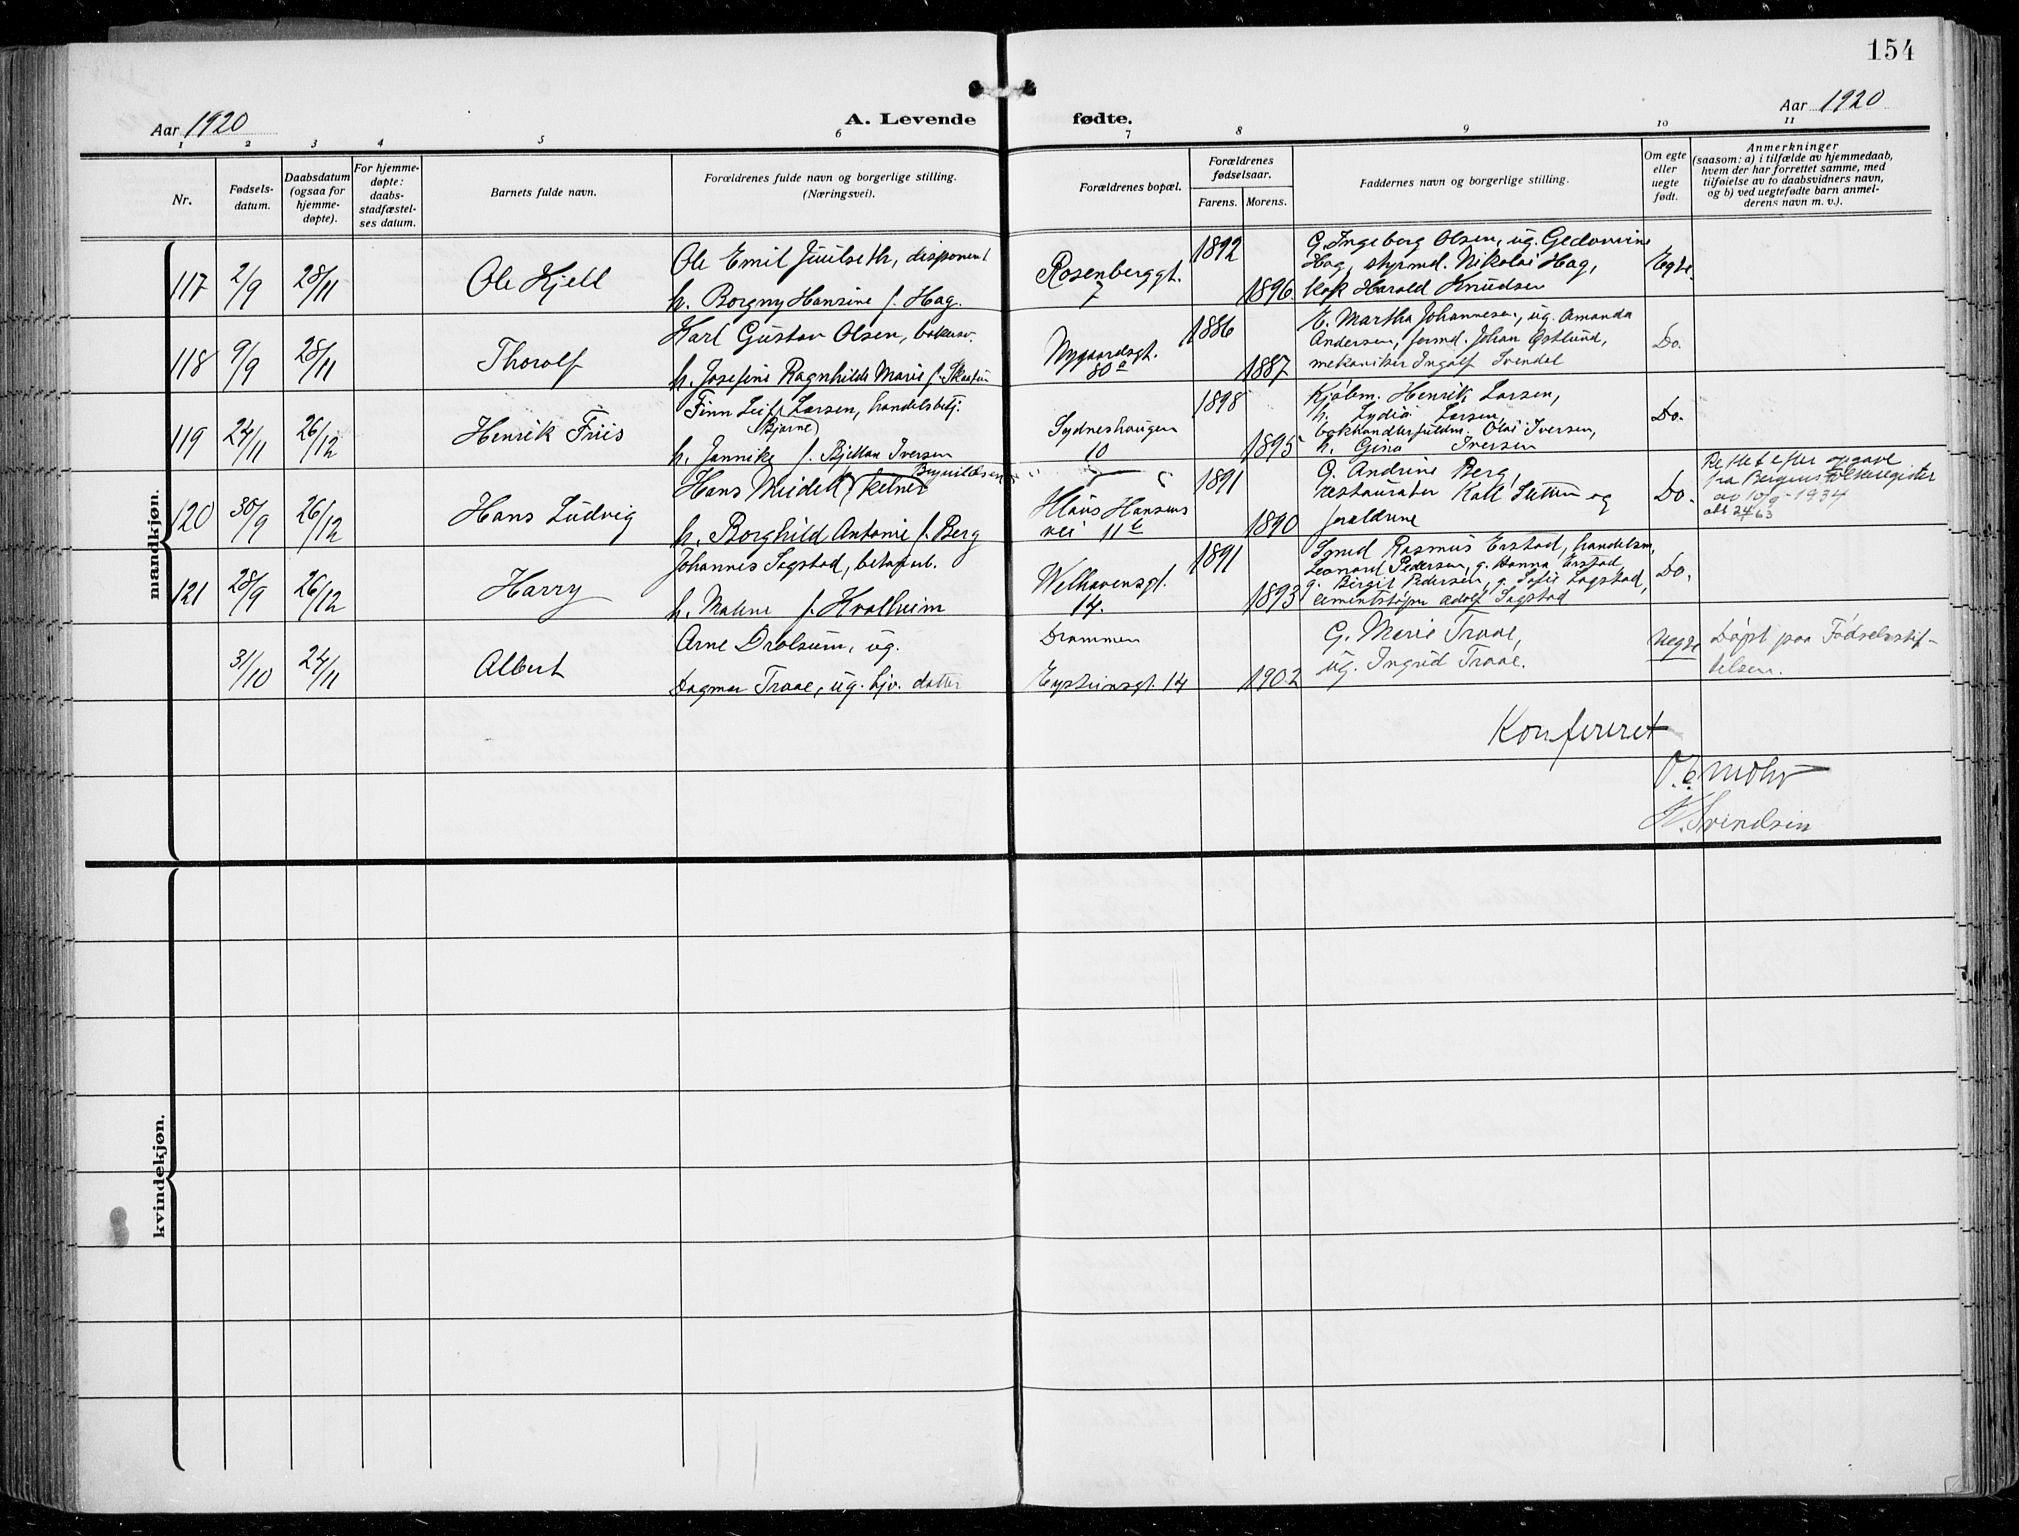 154
Aar 1920
A. Levende fødte.
Aar 1920
1 2 3 4 5 6 7 8 9 10 11
Nr.
Fødsels-
datum.
Daabsdatum
(ogsaa for
hjemme-
døpte).
For hjemme-
døpte:
daabs-
stadfæstel-
ses datum.
Barnets fulde navn.
Forældrenes fulde navn og borgerlige stilling.
(Næringsvei).
Forældrenes bopæl.
Forældrenes
fødselsaar.
Farens. Morens.
Faddernes navn og borgerlige stilling.
Om egte
eller
uegte
født.
Anmerkninger
(saasom: a) i tilfælde av hjemmedaab,
hvem der har forrettet samme, med
tilføielse av to daabsvidners navn,
og b) ved uegtefødte barn anmel-
derens navn m. v.).
mandkjøn.
117 2/9 28/11 Ole Kjell
Ole Emil Juulseth, disponent
h. Borgny Hansine f. Hag.
Rosenberggt.
7
1892
1896
G. Ingeberg Olsen, ug.
Hag, styrmd. Nikolai Hag,
Harald Knudsen
118 9/9 28/11 Thorolf
Karl Gustav Olsen,
h. Josefine Ragnhilda Marie f.
Nygaardsgt.
80a
1886
1887
E. Martha Johannesen, ug. Amanda
Andersen, formd. Johan Østlund,
mekaniker Ingolf Svendal
Do.
119 24/11 26/12 Henrik Friis
Finn Leif Larsen, handelsbetj.
(Bjarne)
h. Jannike f. Iversen
Sydneshaugen
10
1898
1895
Kjøbm. Henrik Larsen,
h. Lydia Larsen,
Olai Iversen,
h. Gina Iversen
Do.
120 30/9 26/12 Hans Ludvig
Hans kelner
h. Borghild Antonie f. Berg
Klaus Hansens
vei 11b
1891
1890
G. Andrine Berg,
restauratør og
foreldrene
Do.
Rettet efter opgave
fra Bergens folkeregister
av 10/9-1934
121 28/9 26/12 Harry
Johannes Sagstad,
h. Malene f. Kvalheim
Welhavensgt.
14.
1891
1893
Smed Rasmus Erstad, handelsm.
Leonard Pedersen, g. Hanna Erstad,
g. Birgit Pedersen, g. Sofie Sagstad,
Adolf Sagstad
Do.
31/10 24/11 Albert
Arne Drolsum, ug.
Dagmar Traae, ug. hjv. datter
Drammen
Eysteinsgt. 14
1902
G. Marie Traae,
ug. Ingrid Traae.
Uegte
Døpt paa Fødselsstif-
telsen.
Konfereret
Mohr
Svendsen
kvindekjøn.